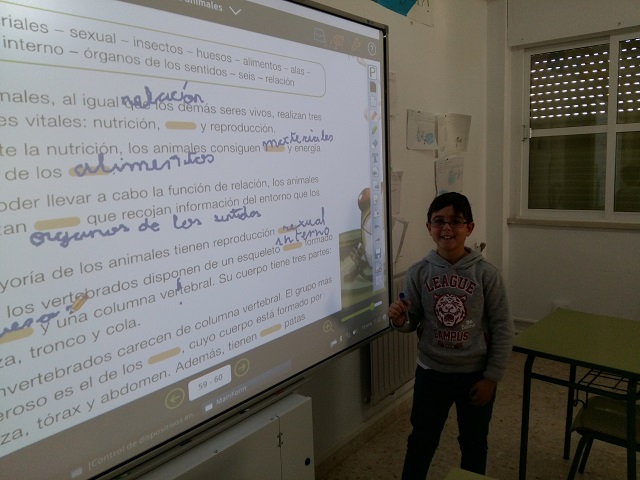 animales
riales – sexual – insectos – huesos – alimentos – alas –
interno – órganos de los sentidos – seis – relación
relación
males, al igual que los demás seres vivos, realizan tres
es vitales: nutrición, y reproducción.
te la nutrición, los animales consiguen materiales y energía
de los alimentos
oder llevar a cabo la función de relación, los animales
tan que recojan información del entorno que los
organos de los sentidos
sexual
yoría de los animales tienen reproducción
interno
los vertebrados disponen de un esqueleto formado
y una columna vertebral. Su cuerpo tiene tres partes:
za, tronco y cola.
nvertebrados carecen de columna vertebral. El grupo más
eroso es el de los , cuyo cuerpo está formado por
za, tórax y abdomen. Además, tienen patas
59 - 60
LEAGUE
CAMPUS